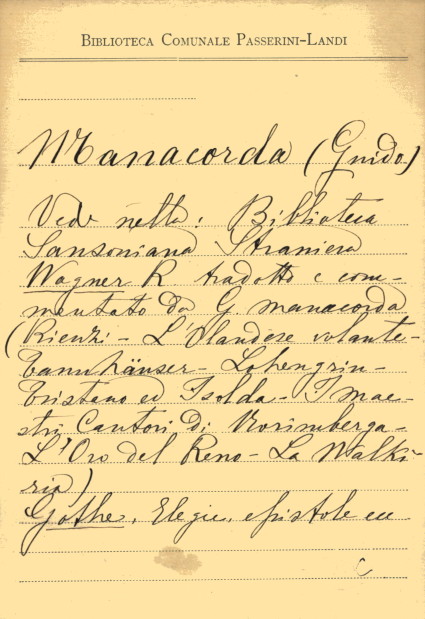 BIBLIOTECA COMUNALE PASSERINI-LANDI
Manacorda (Guido)
Vede nella: Biblioteca
Sansoniana Straniera
Wagner R tradotto e com-
mentato da G manacorda
(Rienzi - L'Olandese volante-
Tannhäuser - Lohengrin-
Tristano ed Isolda - I mae-
stri Cantori di Norimberga-
L'Oro del Reno - La Walki-
ria)
Göthe, Elegie, epistole en